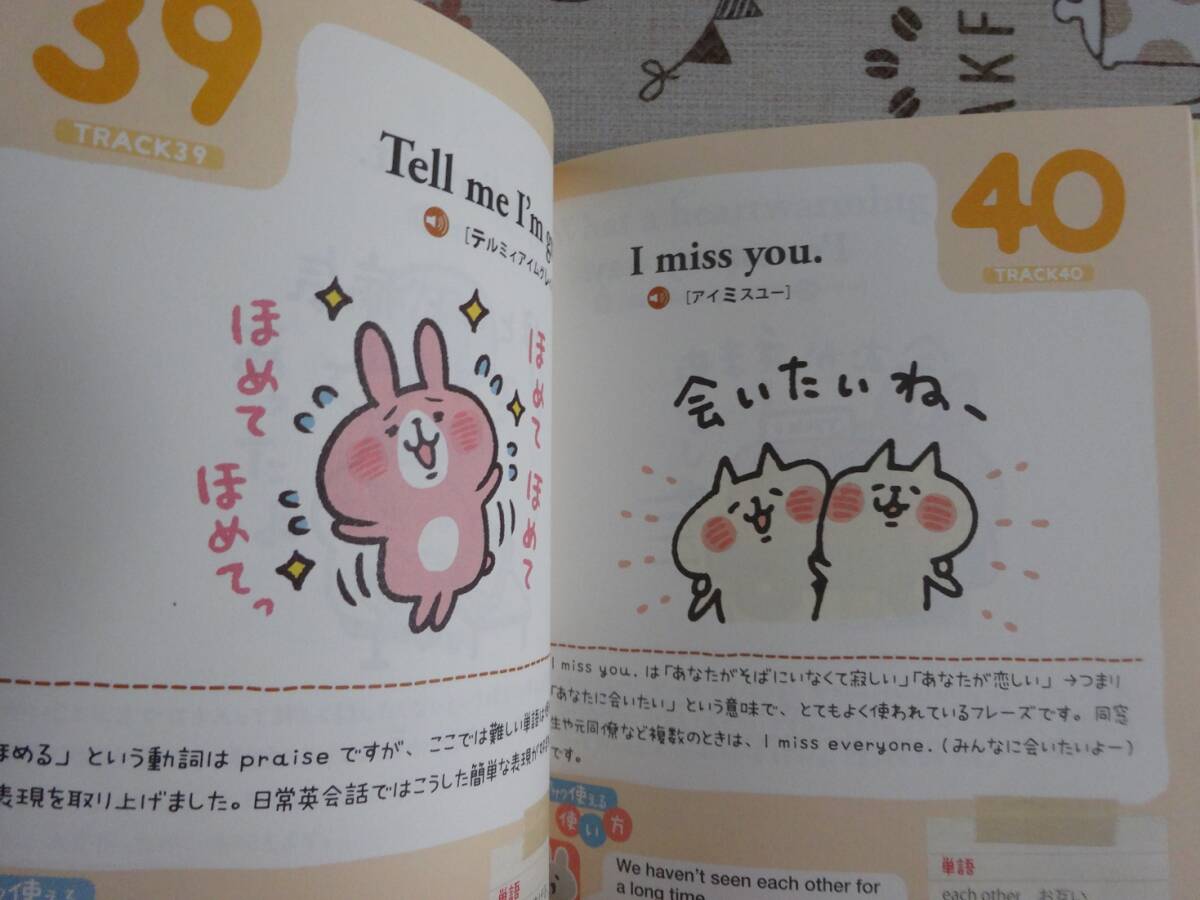 39
TRACK39
Tell me I'm
[テルミィアイムグレ
ほめて
ほめて
ほめてっ
ほめて
ほめる」という動詞は praise ですが、ここでは難しい単語は
表現を取り上げました。日常英会話ではこうした簡単な表現が
使える
単語
40
TRACK40
I miss you.
[アイミスユー]
会いたいね、
I miss you. は「あなたがそばにいなくて寂しい」「あなたが恋しい」→つまり
「あなたに会いたい」という意味で、とてもよく使われているフレーズです。同窓
生や元同僚など複数のときは、I miss everyone.(みんなに会いたいよー)
です。
使える
使い方
We haven't seen each other for
a long time
単語
each other お互い